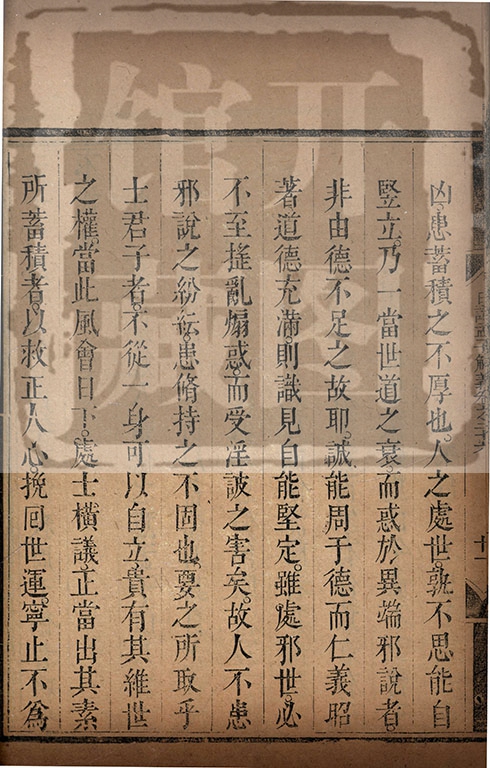 凶患蓄積之不厚也。人之處世。孰不思能自
竪立。乃一當世道之衰。而惑於異端邪說者。
非由德不足之故耶。誠能周于德而仁義昭
著。道德充滿。則識見自能堅定。雖處邪世。必
不至搖亂煽惑。而受淫詖之害矣。故人不患
邪說之紛紜。患脩持之不固也。要之所取乎
士君子者。不從一身可以自立。貴有其維世
之權。當此風會日下。處士橫議。正當出其素
所蓄積者。以救正人心。挽回世運。寧止不為